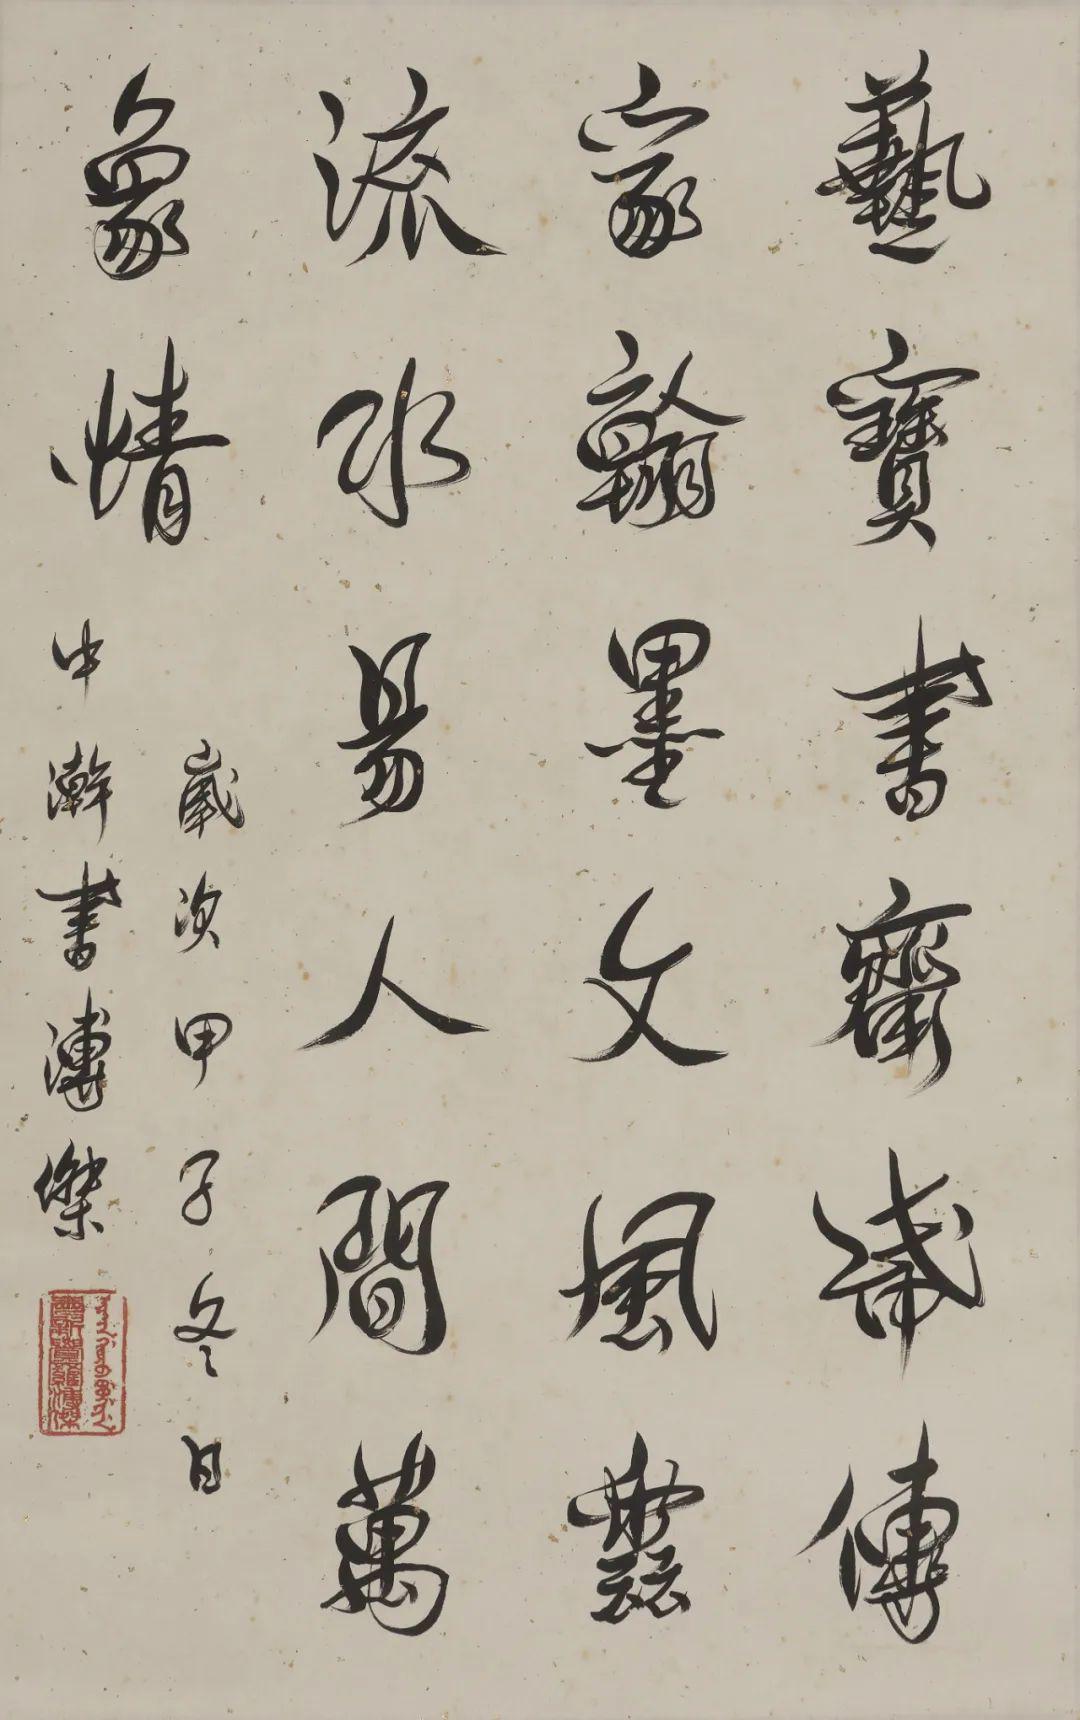 藝寶書齋傳
家翰墨文風
流水易人間萬
象情
歲次甲子冬日
中瀚書溥傑
愛新覺羅溥傑